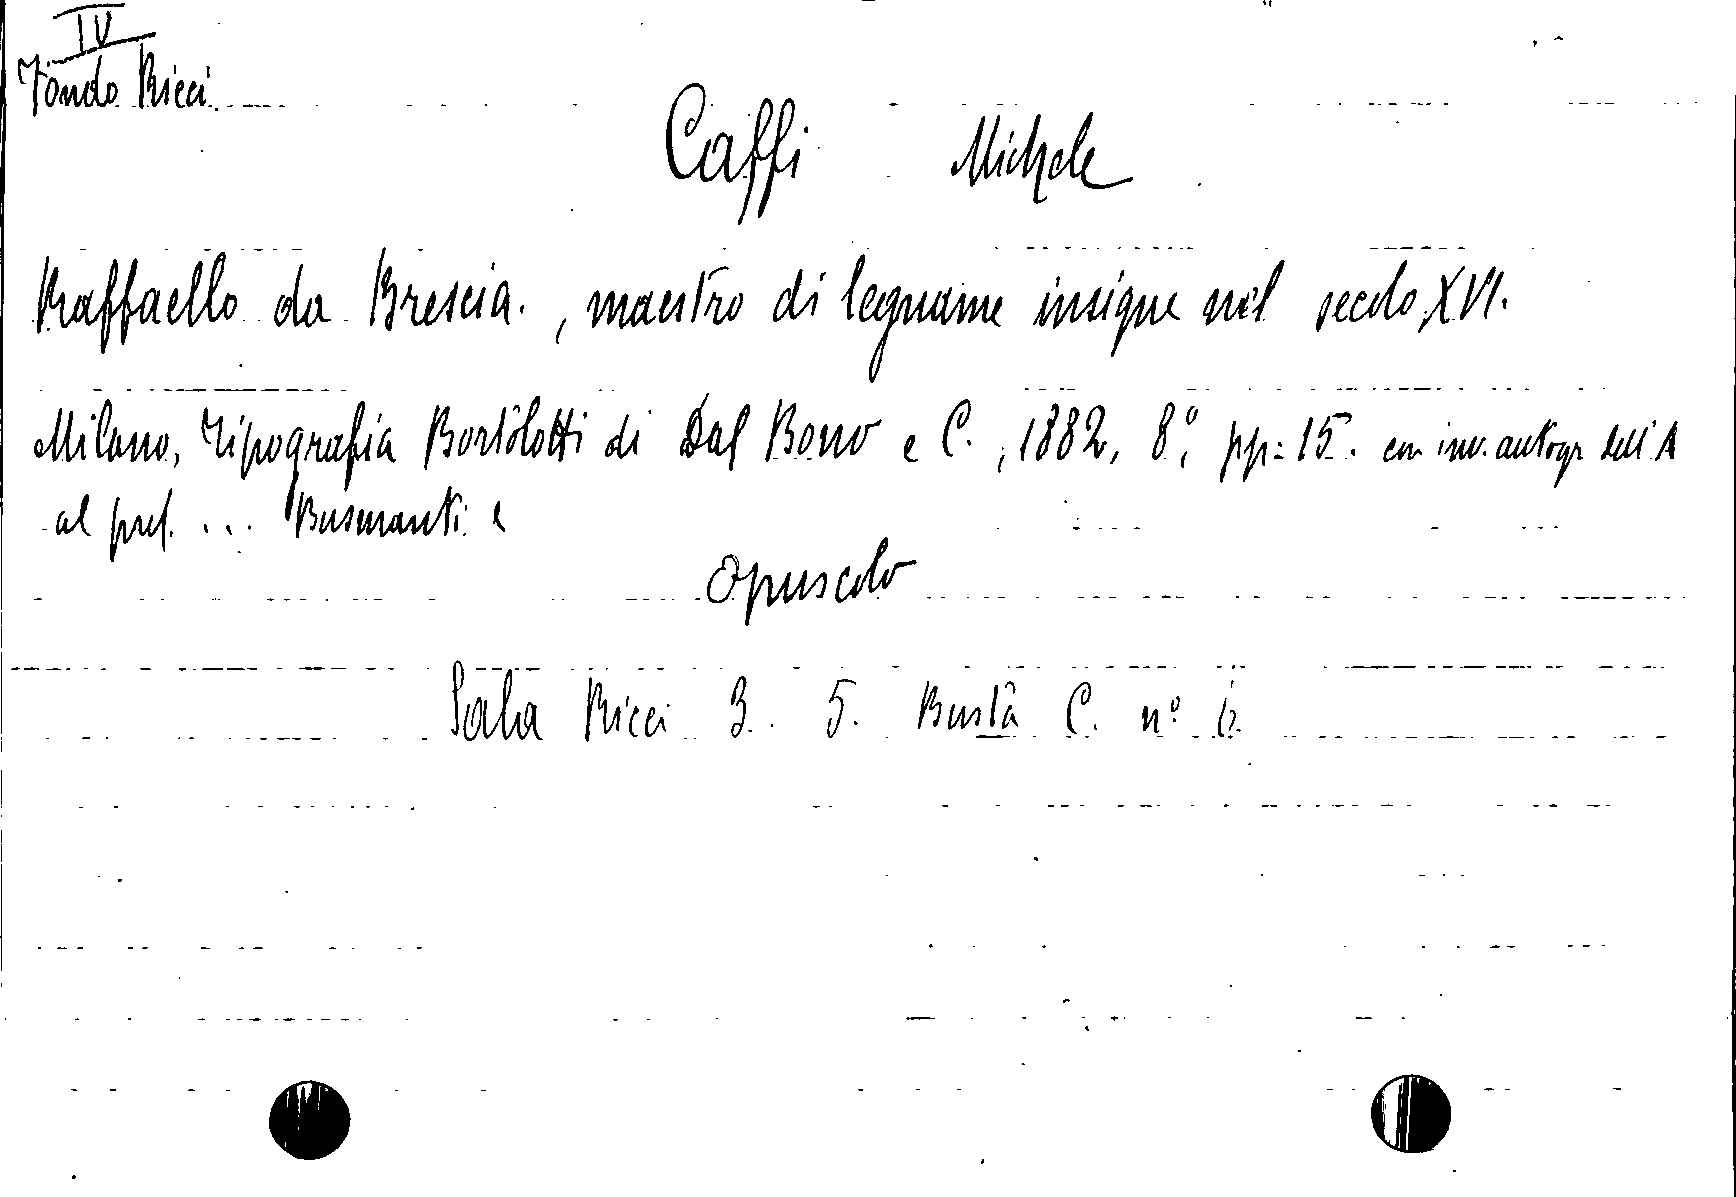 IV
Fondo Ricci
Caffi Michele
Raffaello da Brescia. , maestro di legname insigne nel secolo XVI.
Milano, Tipografia Bortolotti di Dal Bono e C. , 1882, 8°, pp. 15. con inv. autogr dell'A
al prof. ... Busmanti
Opuscolo
Sala Ricci 3. 5. Busta C. n°